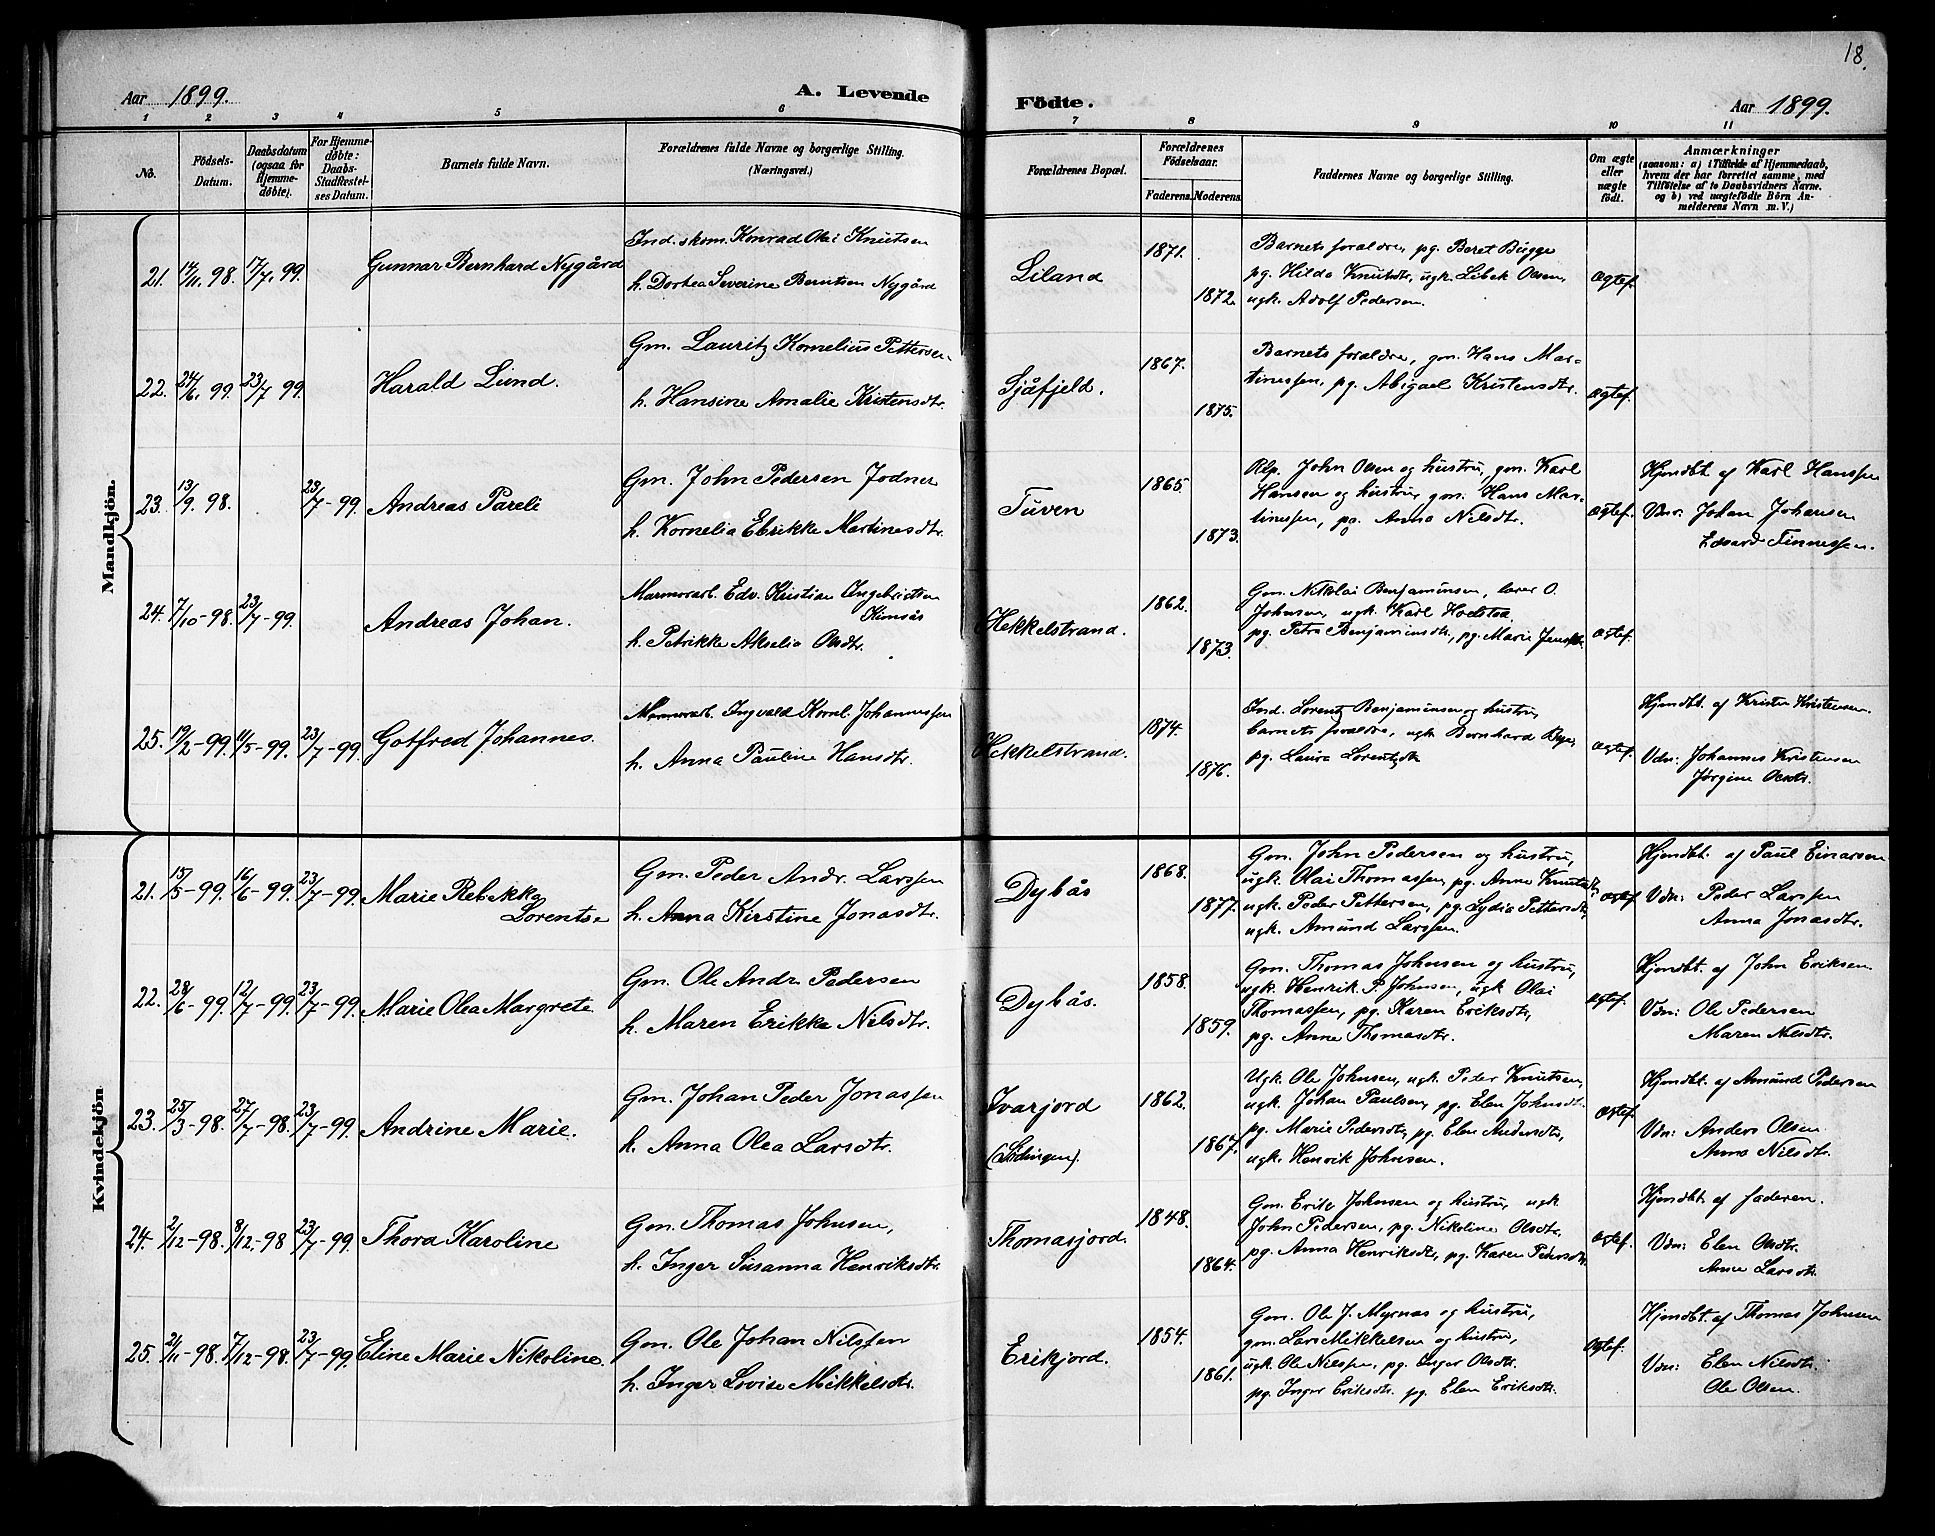 18.
Aar 1899. A. Levende Födte. Aar 1899.
1 2 3 4 5 6 7 8 9 10 11
No.
Födsels-
Datum.
Daabsdatum
(ogsaa for
Hjemme-
döbte).
For Hjemme-
döbte:
Daabs-
Stadfæstel-
ses Datum.
Barnets fulde Navn.
Forældrenes fulde Navne og borgerlige Stilling.
(Næringsvei.)
Forældrenes Bopæl.
Forældrenes
Födselsaar.
Faderens. Moderens.
Faddernes Navne og borgerlige Stilling.
Om ægte
eller
uægte
født.
Anmærkninger
(saasom: a) i Tilfælde af Hjemmedaab,
hvem der har forrettet samme, med
Tilføielse af to Daabsvidners Navne.
og b) ved uægtefødte Börn An-
melderens Navn m. V.)
Mandkjön.
21. 14/11 98. 17/7 99. Gunnar Bernhard Nygård
Ind. skom. Konrad Olai Knutsen
h. Dortea Severine Berntsen Nygård
Liland
1871.
1872.
Barnets forældre, pg. Beret Bugge
pg. Hilda Knutsdtr, ugk. Libek Olsen,
ugk. Adolf Pedersen.
Ægtef.
22. 24/6 99 23/7 99 Harald Lund.
Gm. Lauritz Kornelius Pettersen
h. Hansine Amalie Kristensdtr.
Sjåfjeld.
1867.
1875.
Barnets forældre, gm. Hans Mar-
tinessen, pg. Abigael Kristensdtr.
Ægtef.
23. 13/9 98. 23/7-99. Andreas Pareli
Gm. John Pedersen Jodner
h. Kornelia Ebrikke Martinesdtr.
Tuven
1865.
1873.
Rlp. John Olsen og hustru, gm. Karl
Hansen og hustru, gm. Hans Mar-
tinessen, pg. Anna Nilsdtr.
Ægtef.
Hjmdbt. af Karl Hanssen
Vdn: Johan Johansen
Edvard Finnessen.
24. 7/10-98. 23/7-99. Andreas Johan.
Marmorarb. Edv. Kristian Ingebrigtsen
Kimsås
h. Petrikke Akselia Olsdtr.
Hekkelstrand.
1862.
1873.
Gm. Nikolai Benjaminsen, lærer O.
Johnsen, ugk. Karl Hoelstad,
pg. Petra Benjaminsdtr., pg. Marie Jensdtr.
Ægtef.
25. 19/2-99. 11/5-99. 23/7-99. Gotfred Johannes.
Marmorarb. Ingvald Kornl. Johannessen
h. Anna Pauline Hansdtr.
Hekkelstrand.
1874.
1876.
Ind. Lorentz Benjaminsen og hustru,
barnets forældre, ugk. Bernhard
pg. Laura Lorentzdtr.
Ægtef.
Hjmdbt. af Kristen Kristensen.
Vdn: Johannes Kristensen
Jørgine Olsdtr.
Kvindekjön
21. 15/5-99. 16/6-99. 23/7-99. Marie Rebekka
Lorentse
Gm. Peder Andr. Larssen
h. Anna Kirstine Jonasdtr.
Dybås
1868.
1877.
Gm. John Pedersen og hustru,
ugk. Olai Thomassen, pg. Anne Knutsdtr.
ugk. Peder Pettersen, pg. Lydia Pettersdtr.
ugk. Amund Larssen.
Ægtef
Hjmdbt. af Paul Einarsen
Vdn: Peder Larssen
Anna Jonasdtr.
22. 28/6-99. 12/7-99. 23/7-99. Marie Olea Margrete
Gm. Ole Andr. Pedersen
h. Maren Erikke Nilsdtr.
Dybås.
1858.
1859.
Gm. Thomas Johnsen og hustru,
ugk. Henrik P. Johnsen, ugk Olai
Thomassen, pg. Karen Eriksdtr,
pg. Anne Thomasdtr.
Ægtef.
Hjmdbt. af John Eriksen.
Vdn: Ole Pedersen
Maren Nilsdtr.
23. 25/3-98. 27/7-98. 23/7-99. Andrine Marie.
Gm. Johan Peder Jonassen
h. Anna Olea Larsdtr.
Ivarjord
(Lødingen).
1862.
1867.
Ugk. Ole Johnsen, ugk. Peder Knutsen,
ugk. Johan Paulsen, pg. Elen Johnsdtr.
pg. Marie Pedersdtr, pg. Elen Andersdtr,
ugk. Henrik Johnsen.
Ægtef.
Hjmdbt. af Amund Pedersen
Vdn: Anders Olsen
Anna Nilsdtr.
24. 2/12-98. 8/12-98 23/7-99. Thora Karoline
Gm. Thomas Johnsen,
h. Inger Susanna Henriksdtr.
Thomasjord.
1848.
1864.
Gm. Erik Johnsen og hustru, ugk
John Pedersen, pg. Nikoline Olsdtr,
pg. Anna Henriksdtr, pg. Karen Pedersdtr.
Ægtef.
Hjmdbt. af faderen.
Vdn: Elen Olsdtr.
Anne Larsdtr.
25. 21/11-98. 7/12-98. 23/7-99. Eline Marie Nikoline.
Gm. Ole Johan Nilssen
h. Inger Lovise Mikkelsdtr.
Erikjord.
1854.
1861.
Gm. Ole J. Myrnæs og hustru,
gm. Lars Mikkelsen og hustru,
ugk. Ole Nilssen, pg. Inger Olsdtr.
pg. Inger Eriksdtr. pg. Elen Eriksdtr.
Ægtef.
Hjmdbt. af Thomas Johnsen
Vdn: Elen Nilsdtr.
Ole Olsen.